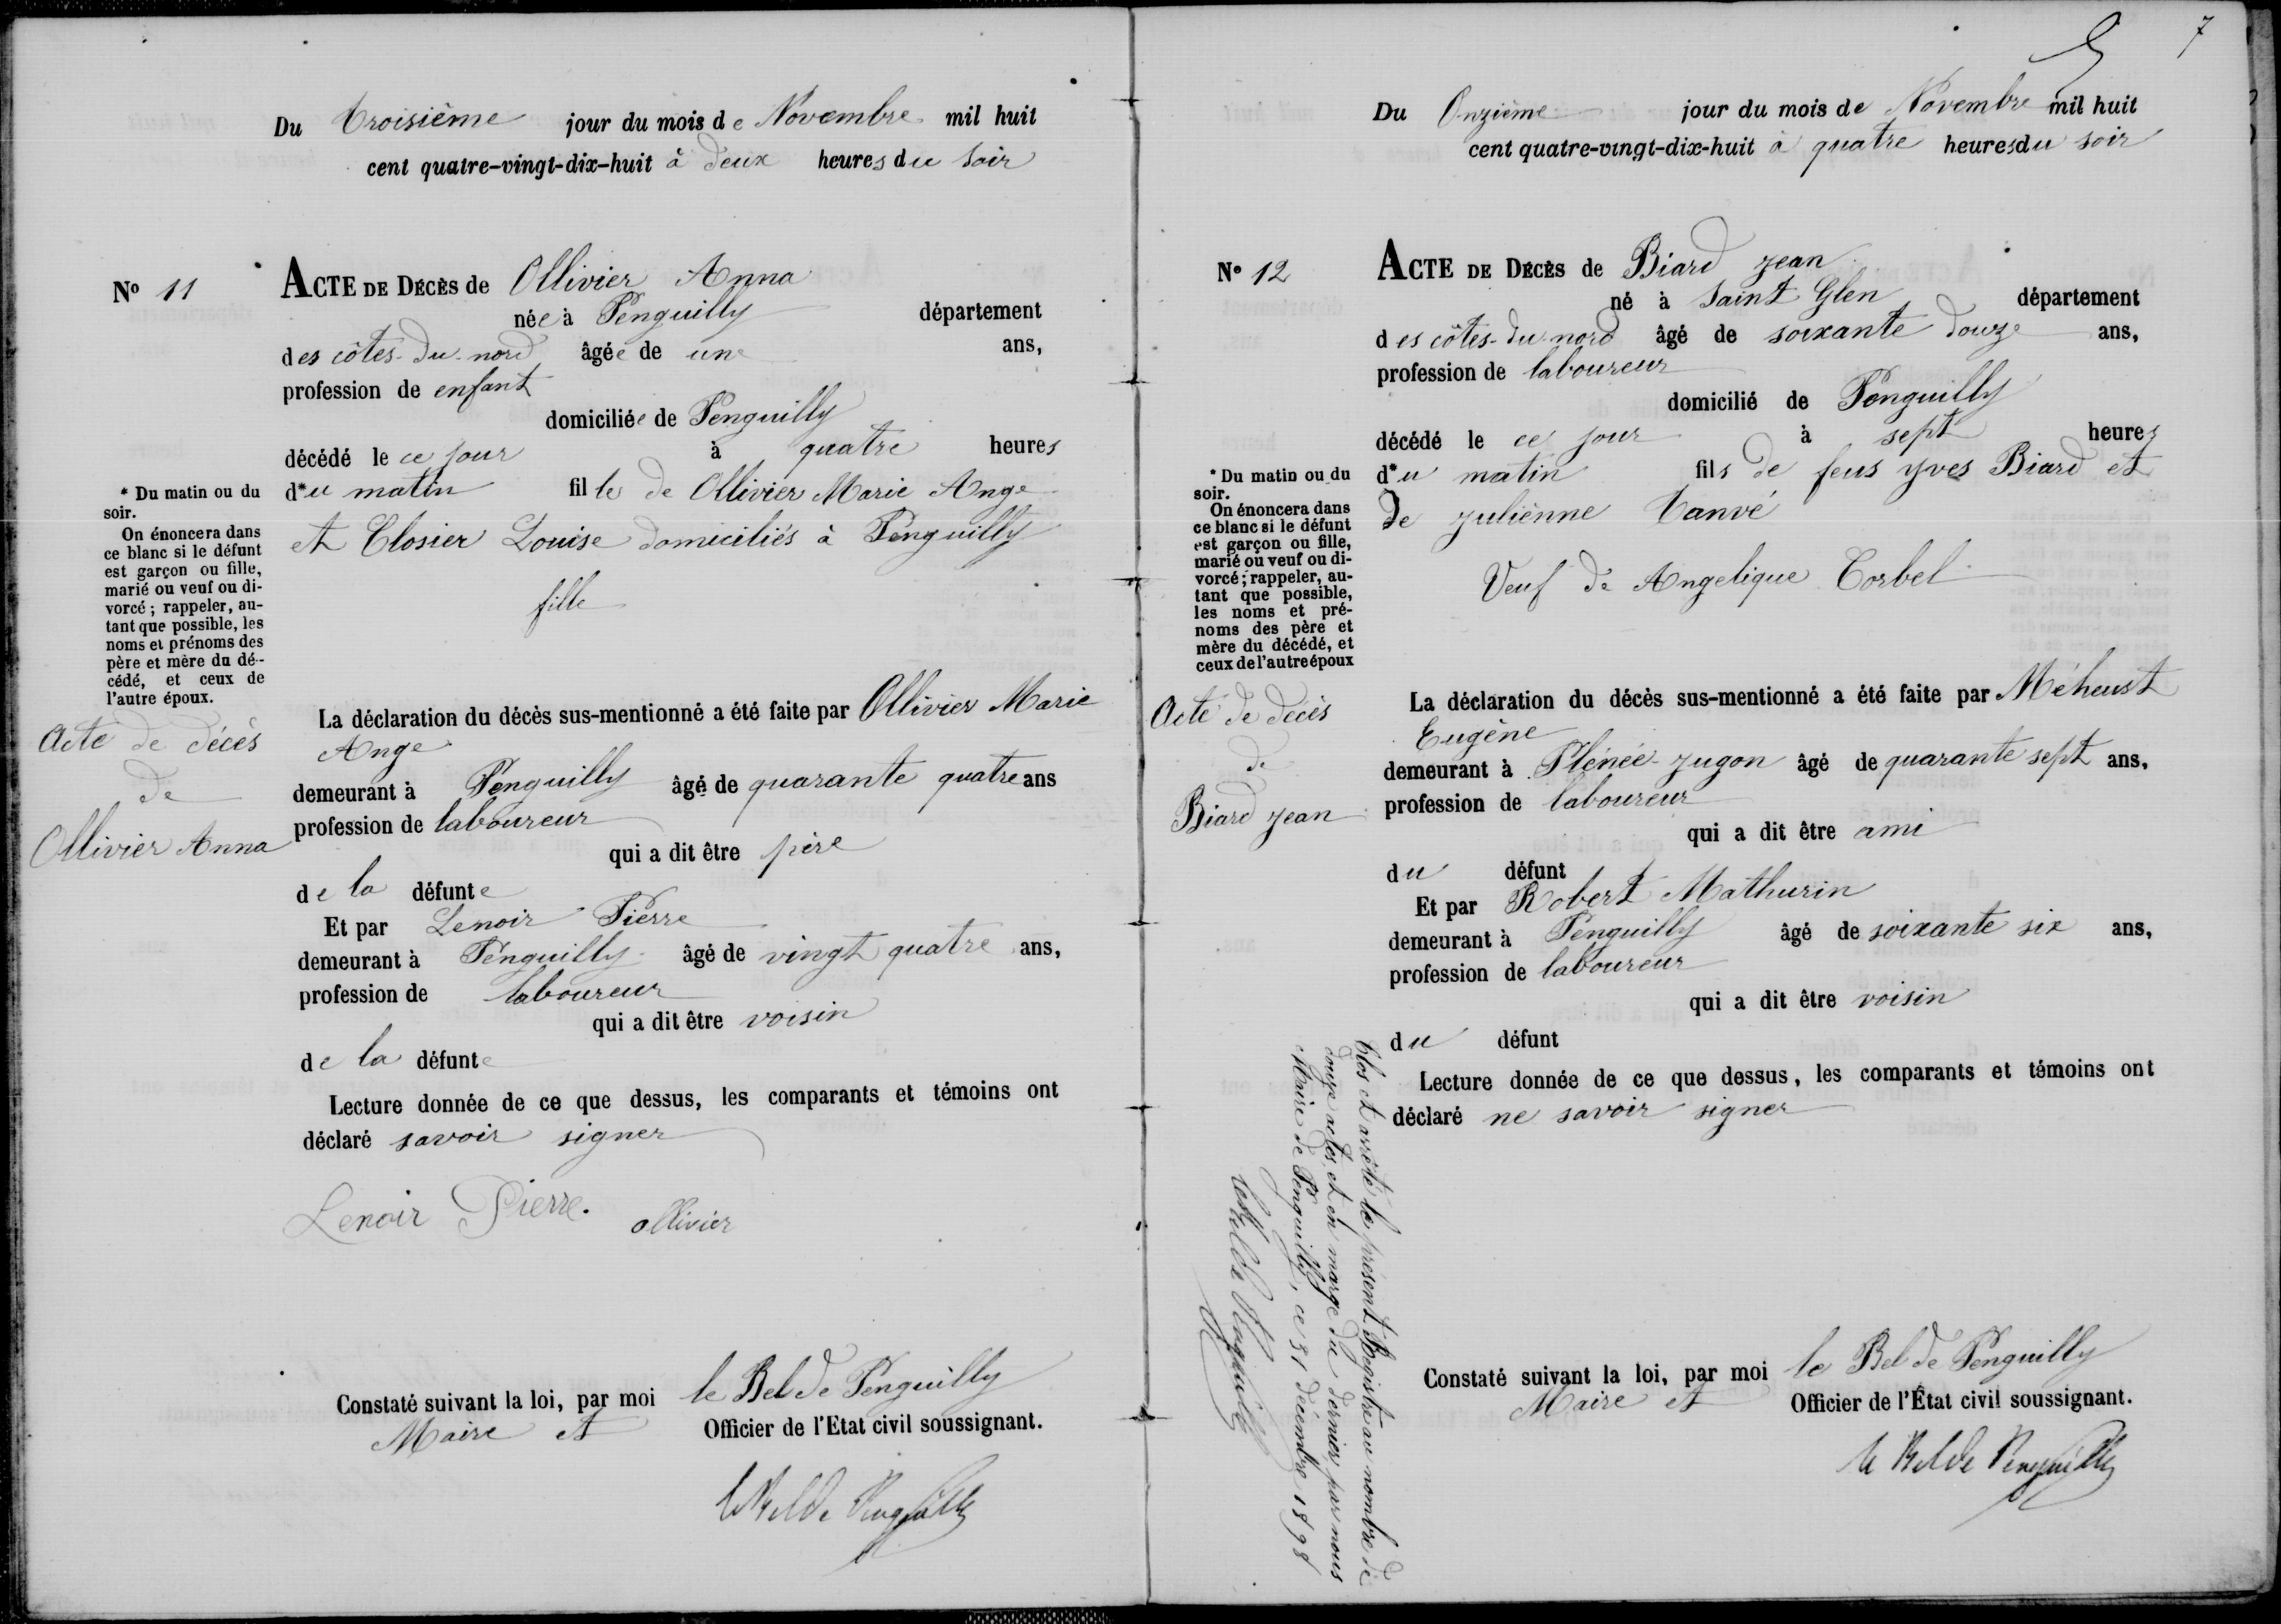 Du troisième jour du mois de Novembre mil huit
cent quatre-vingt-dix-huit à deux heures du soir
No 11
ACTE DE DÉCÈS de Ollivier Anna
née à Penguilly département
des côtes-du-nord âgée de une ans,
profession de enfant
domiciliée de Penguilly
décédé le ce jour à quatre heures
d*u matin fille de Ollivier Marie Ange
et Closier Louise domiciliés à Penguilly
fille
* Du matin ou du
soir.
On énoncera dans
ce blanc si le défunt
est garçon ou fille,
marié ou veuf ou di-
vorcé ; rappeler, au-
tant que possible, les
noms et prénoms des
père et mère du dé-
cédé, et ceux de
l'autre époux.
Acte de décès
de
Ollivier Anna
La déclaration du décès sus-mentionné a été faite par Ollivier Marie
Ange
demeurant à Penguilly âgé de quarante quatre ans
profession de laboureur
qui a dit être père
de la défunte
Et par Lenoir Pierre
demeurant à Penguilly âgé de vingt quatre ans,
profession de laboureur
qui a dit être voisin
de la défunte
Lecture donnée de ce que dessus, les comparants et témoins ont
déclaré savoir signer
Lenoir Pierre. ollivier
Constaté suivant la loi, par moi le Bel de Penguilly
Maire et Officier de l'Etat civil soussignant.
le Bel de Penguilly
7
Du Onzième jour du mois de Novembre mil huit
cent quatre-vingt-dix-huit à quatre heures du soir
No 12
ACTE DE DÉCÈS de Biard Jean
né à Saint Glen département
des côtes-du-nord âgé de soixante douze ans,
profession de laboureur
domicilié de Penguilly
décédé le ce jour à sept heures
d*u matin fils de feus Yves Biard et
de Julienne Tanvé
Veuf de Angelique Corbel
* Du matin ou du
soir.
On énoncera dans
ce blanc si le défunt
est garçon ou fille,
marié ou veuf ou di-
vorcé ; rappeler, au-
tant que possible,
les noms et pré-
noms des père et
mère du décédé, et
ceux de l'autre époux
Acte de décès
de
Biard Jean
La déclaration du décès sus-mentionné a été faite par Méheust
Eugène
demeurant à Plénée-Jugon âgé de quarante sept ans,
profession de laboureur
qui a dit être ami
du défunt
Et par Robert Mathurin
demeurant à Penguilly âgé de soixante six ans,
profession de laboureur
qui a dit être voisin
du défunt
Lecture donnée de ce que dessus, les comparants et témoins ont
déclaré ne savoir signer
Clos et arrêté le présent Registre au nombre de
douze actes et en marge du dernier, par nous
Maire de Penguilly, ce 31 décembre 1898
le Bel de Penguilly
Constaté suivant la loi, par moi le Bel de Penguilly
Maire et Officier de l'État civil soussignant.
le Bel de Penguilly